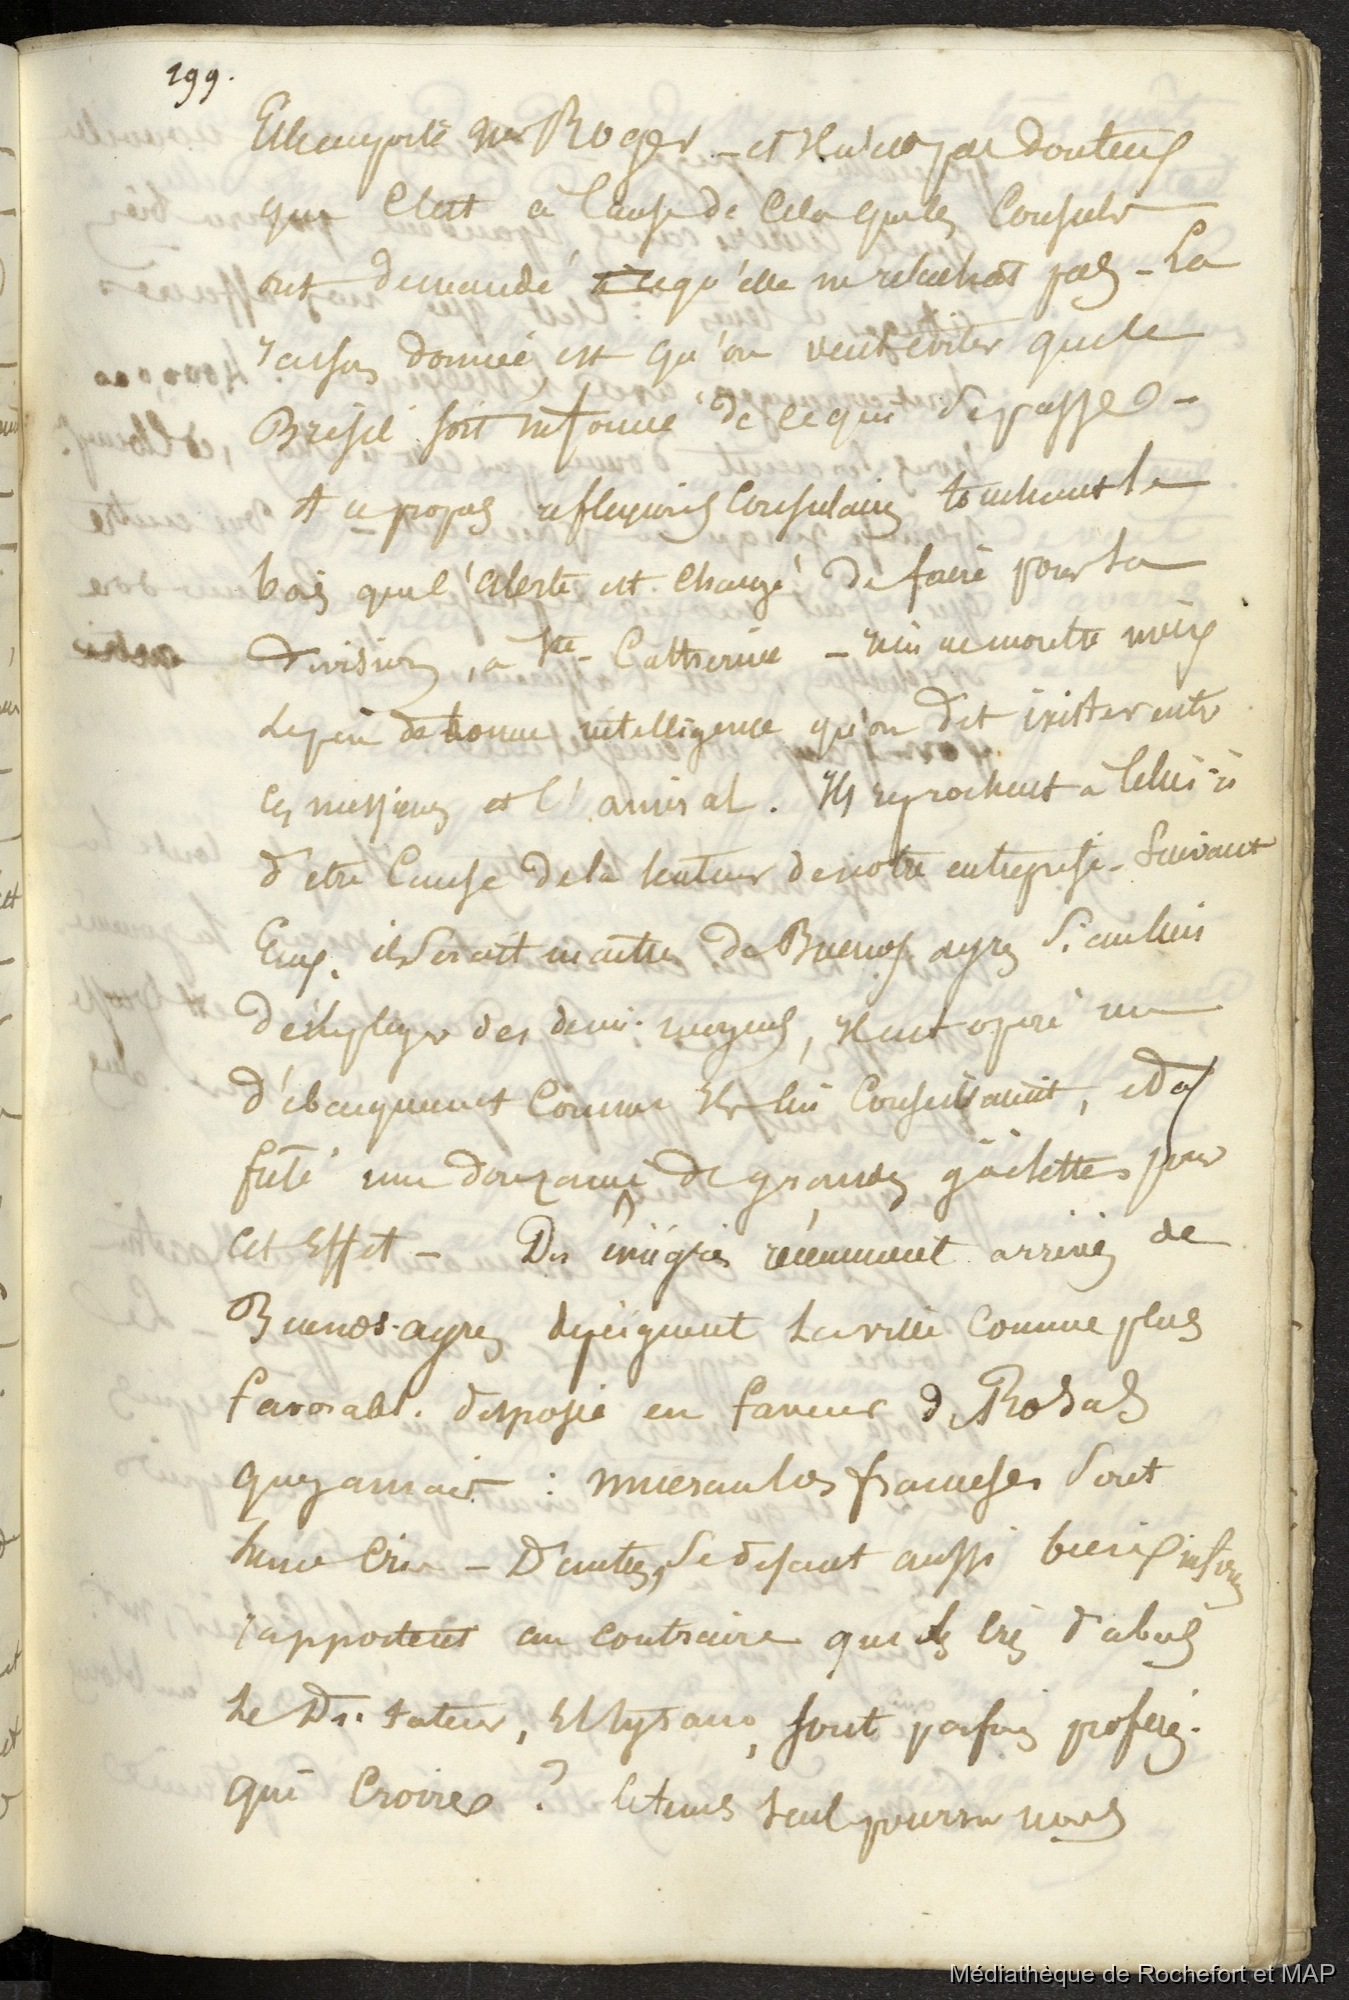 299.
Elle emporte Mr Roger - et Il n'est pas douteux
que C'est à Cause de Cela que les Consuls
ont demandé à ce qu'elle ne relachat pas - La
raison donnée, est qu'on veut éviter que le
Brésil soit informé de ce qui se passe -
A ce propos reflexions Consulaires touchant le
bois que l'alerte est chargé de faire pour la
division, a Ste Catherine - rien ne montre mieux
le peu de bonne intelligence qu'on dit exister entre
ces messieurs et l'amiral. Ils reprochent à Celui-ci
d'etre Cause de la lenteur de notre entreprise - Suivant
Eux, il serait maitre de Buenos ayres Si au lieu
d'employer des demi-moyens, Il eut opéré un
débarquement Comme Ils lui Conseillaient, et
frété une douzaine de grandes goëlettes pour
cet Effet - Des émigrés récemment arrivés de
Buenos-ayres dépeignent la ville Comme plus
favorabl. disposée en faveur de Rosas
que jamais : mueran los franceses Sont
leurs Cris - D'autres, se disant aussi bien inform
rapportent au contraire que les Cris d'abas
le Dictateur, El tyrano, sont parfois proférés.
qui Croire ? le tems seul pourra nous
Médiathèque de Rochefort et MAP